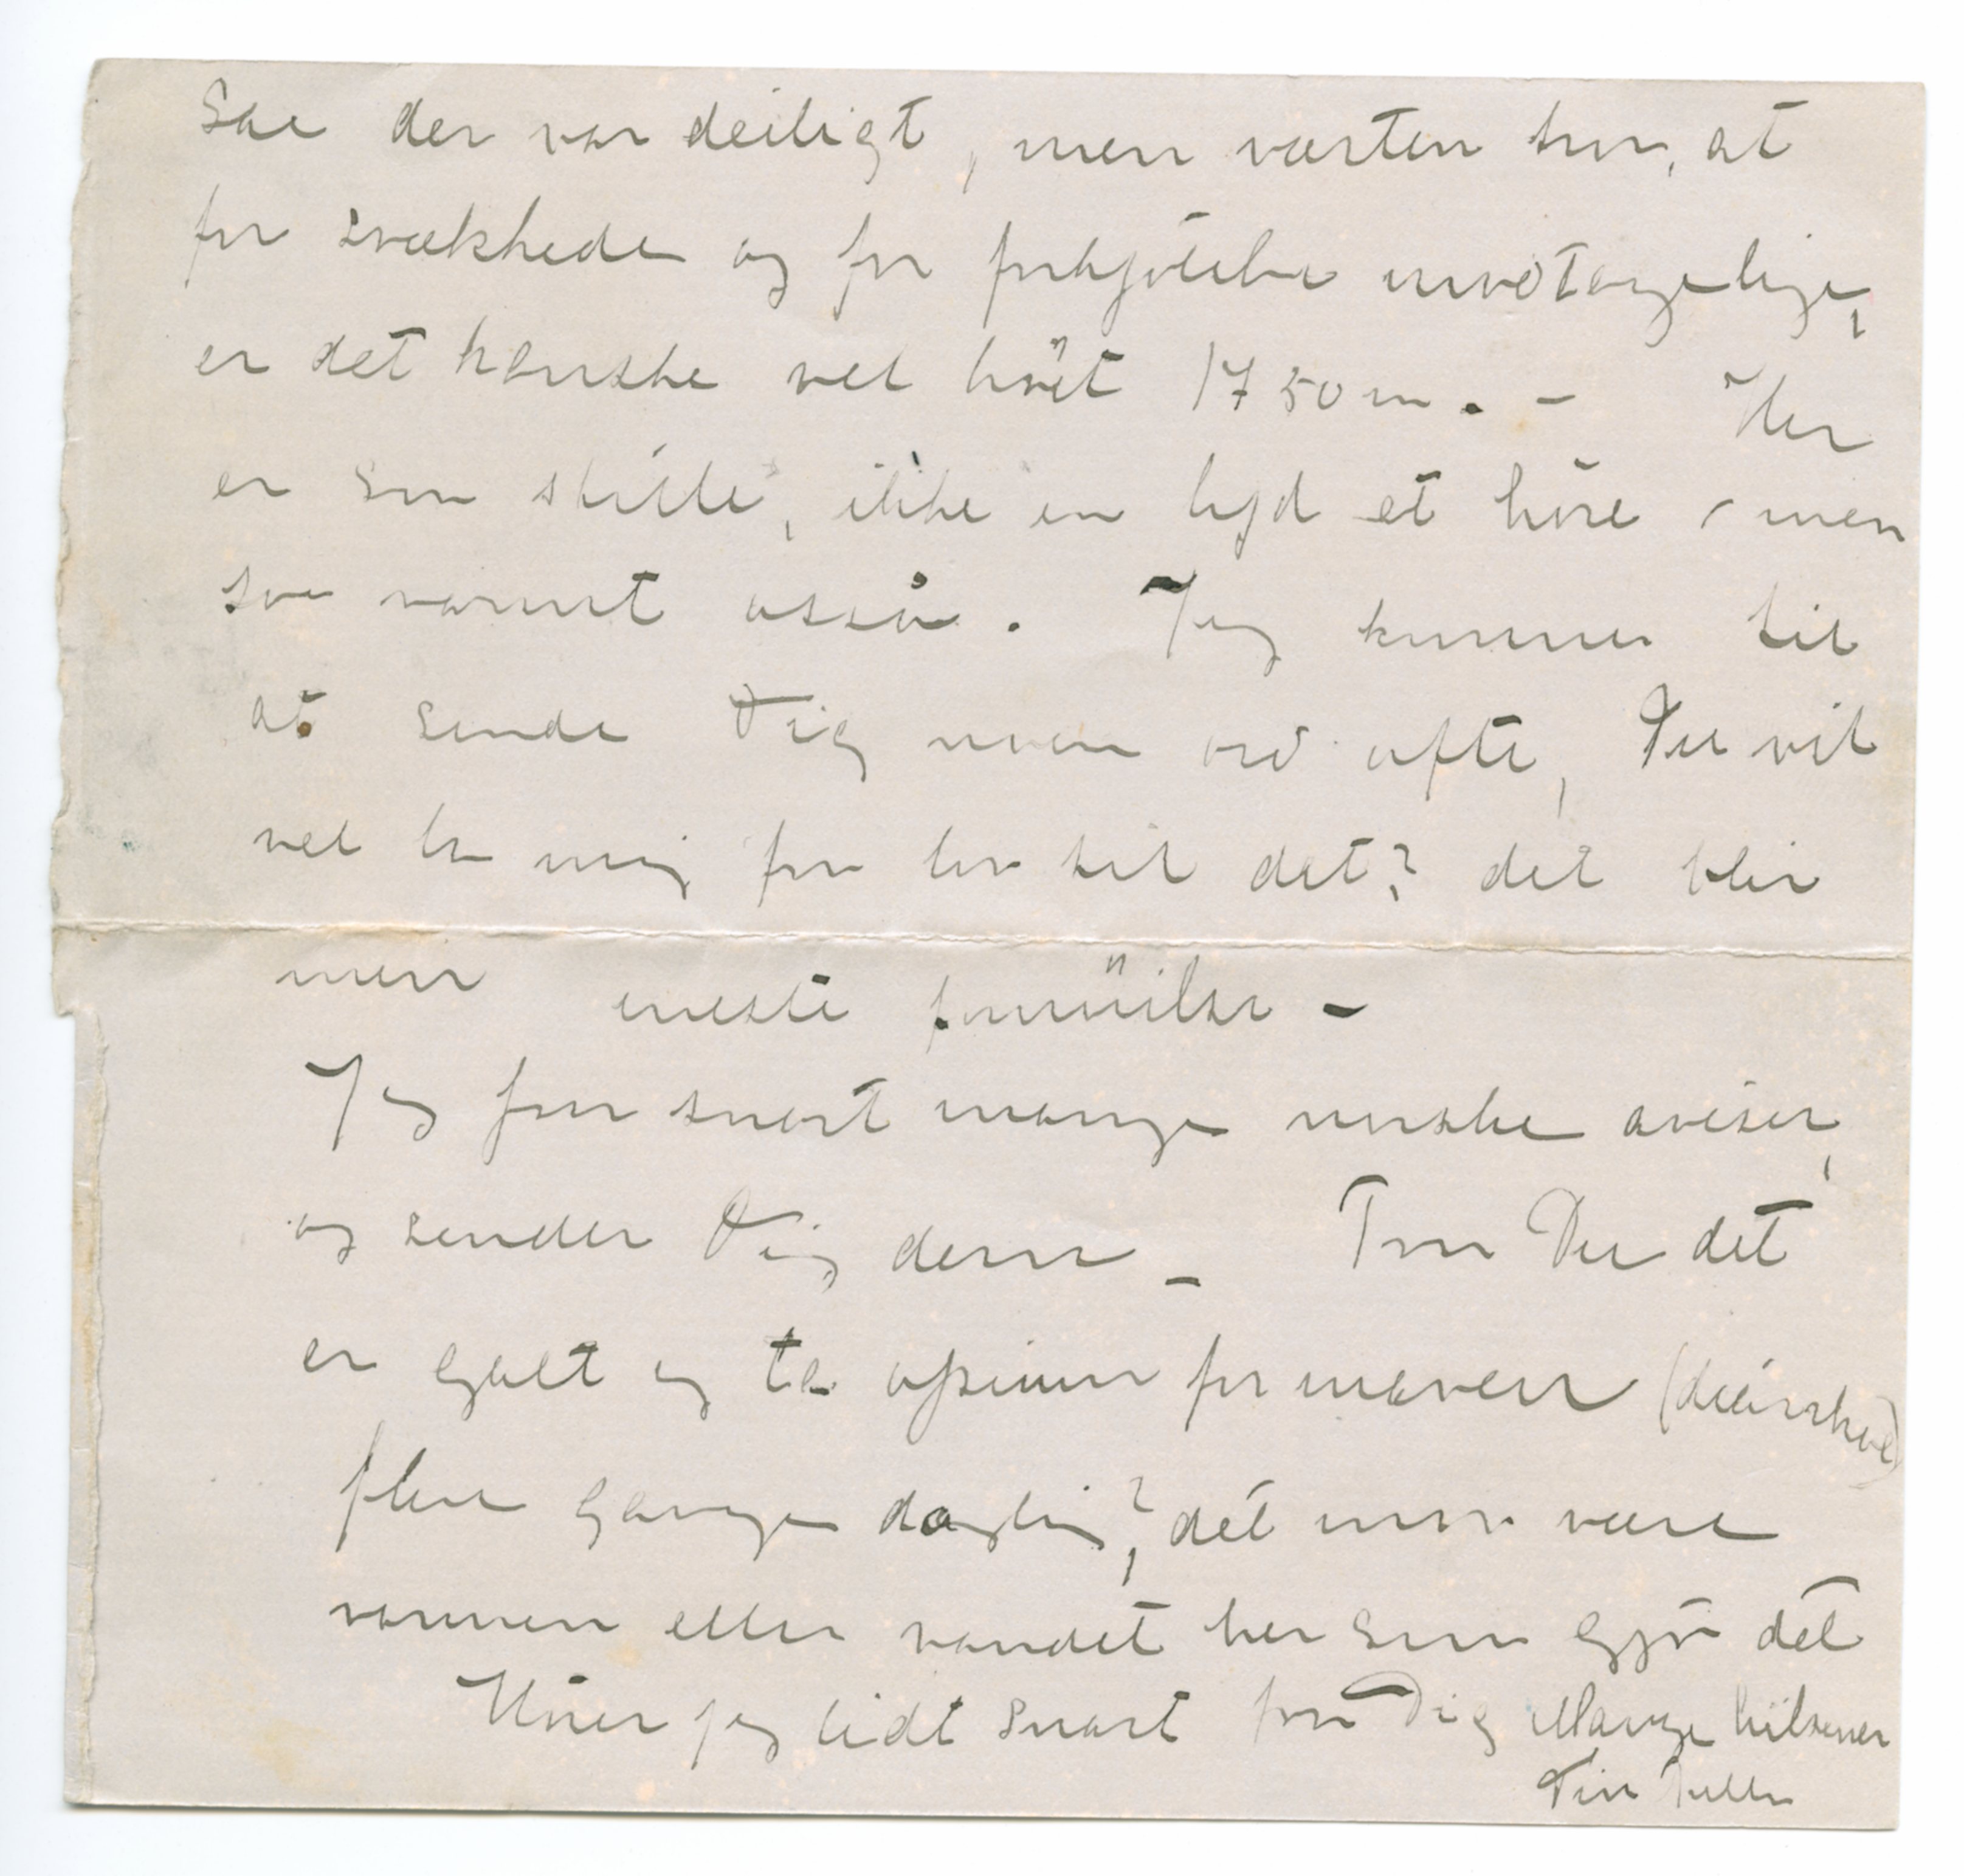 saa der var deiligt, men værten tror, at
for svækkede og for forkjølelse modtagelige,
er det kanske vel høit 1750 m. – Her
er saa stille, ikke en lyd at høre, men
saa varmt ossaa. Jeg kommer til
at sende Dig noen ord ofte, Du vil
vel la mig faa lov til det? det blir
min eneste fornøielse –
Jeg faar snart mange norske aviser,
og sender Dig dem – Tror Du det
er galt og ta opium for maven (diarrhoe)
flere gange daglig? det maa være
varmen eller vandet her som gjør det
Hører jeg lidt snart fra Dig Mange hilsener
Din Tulla